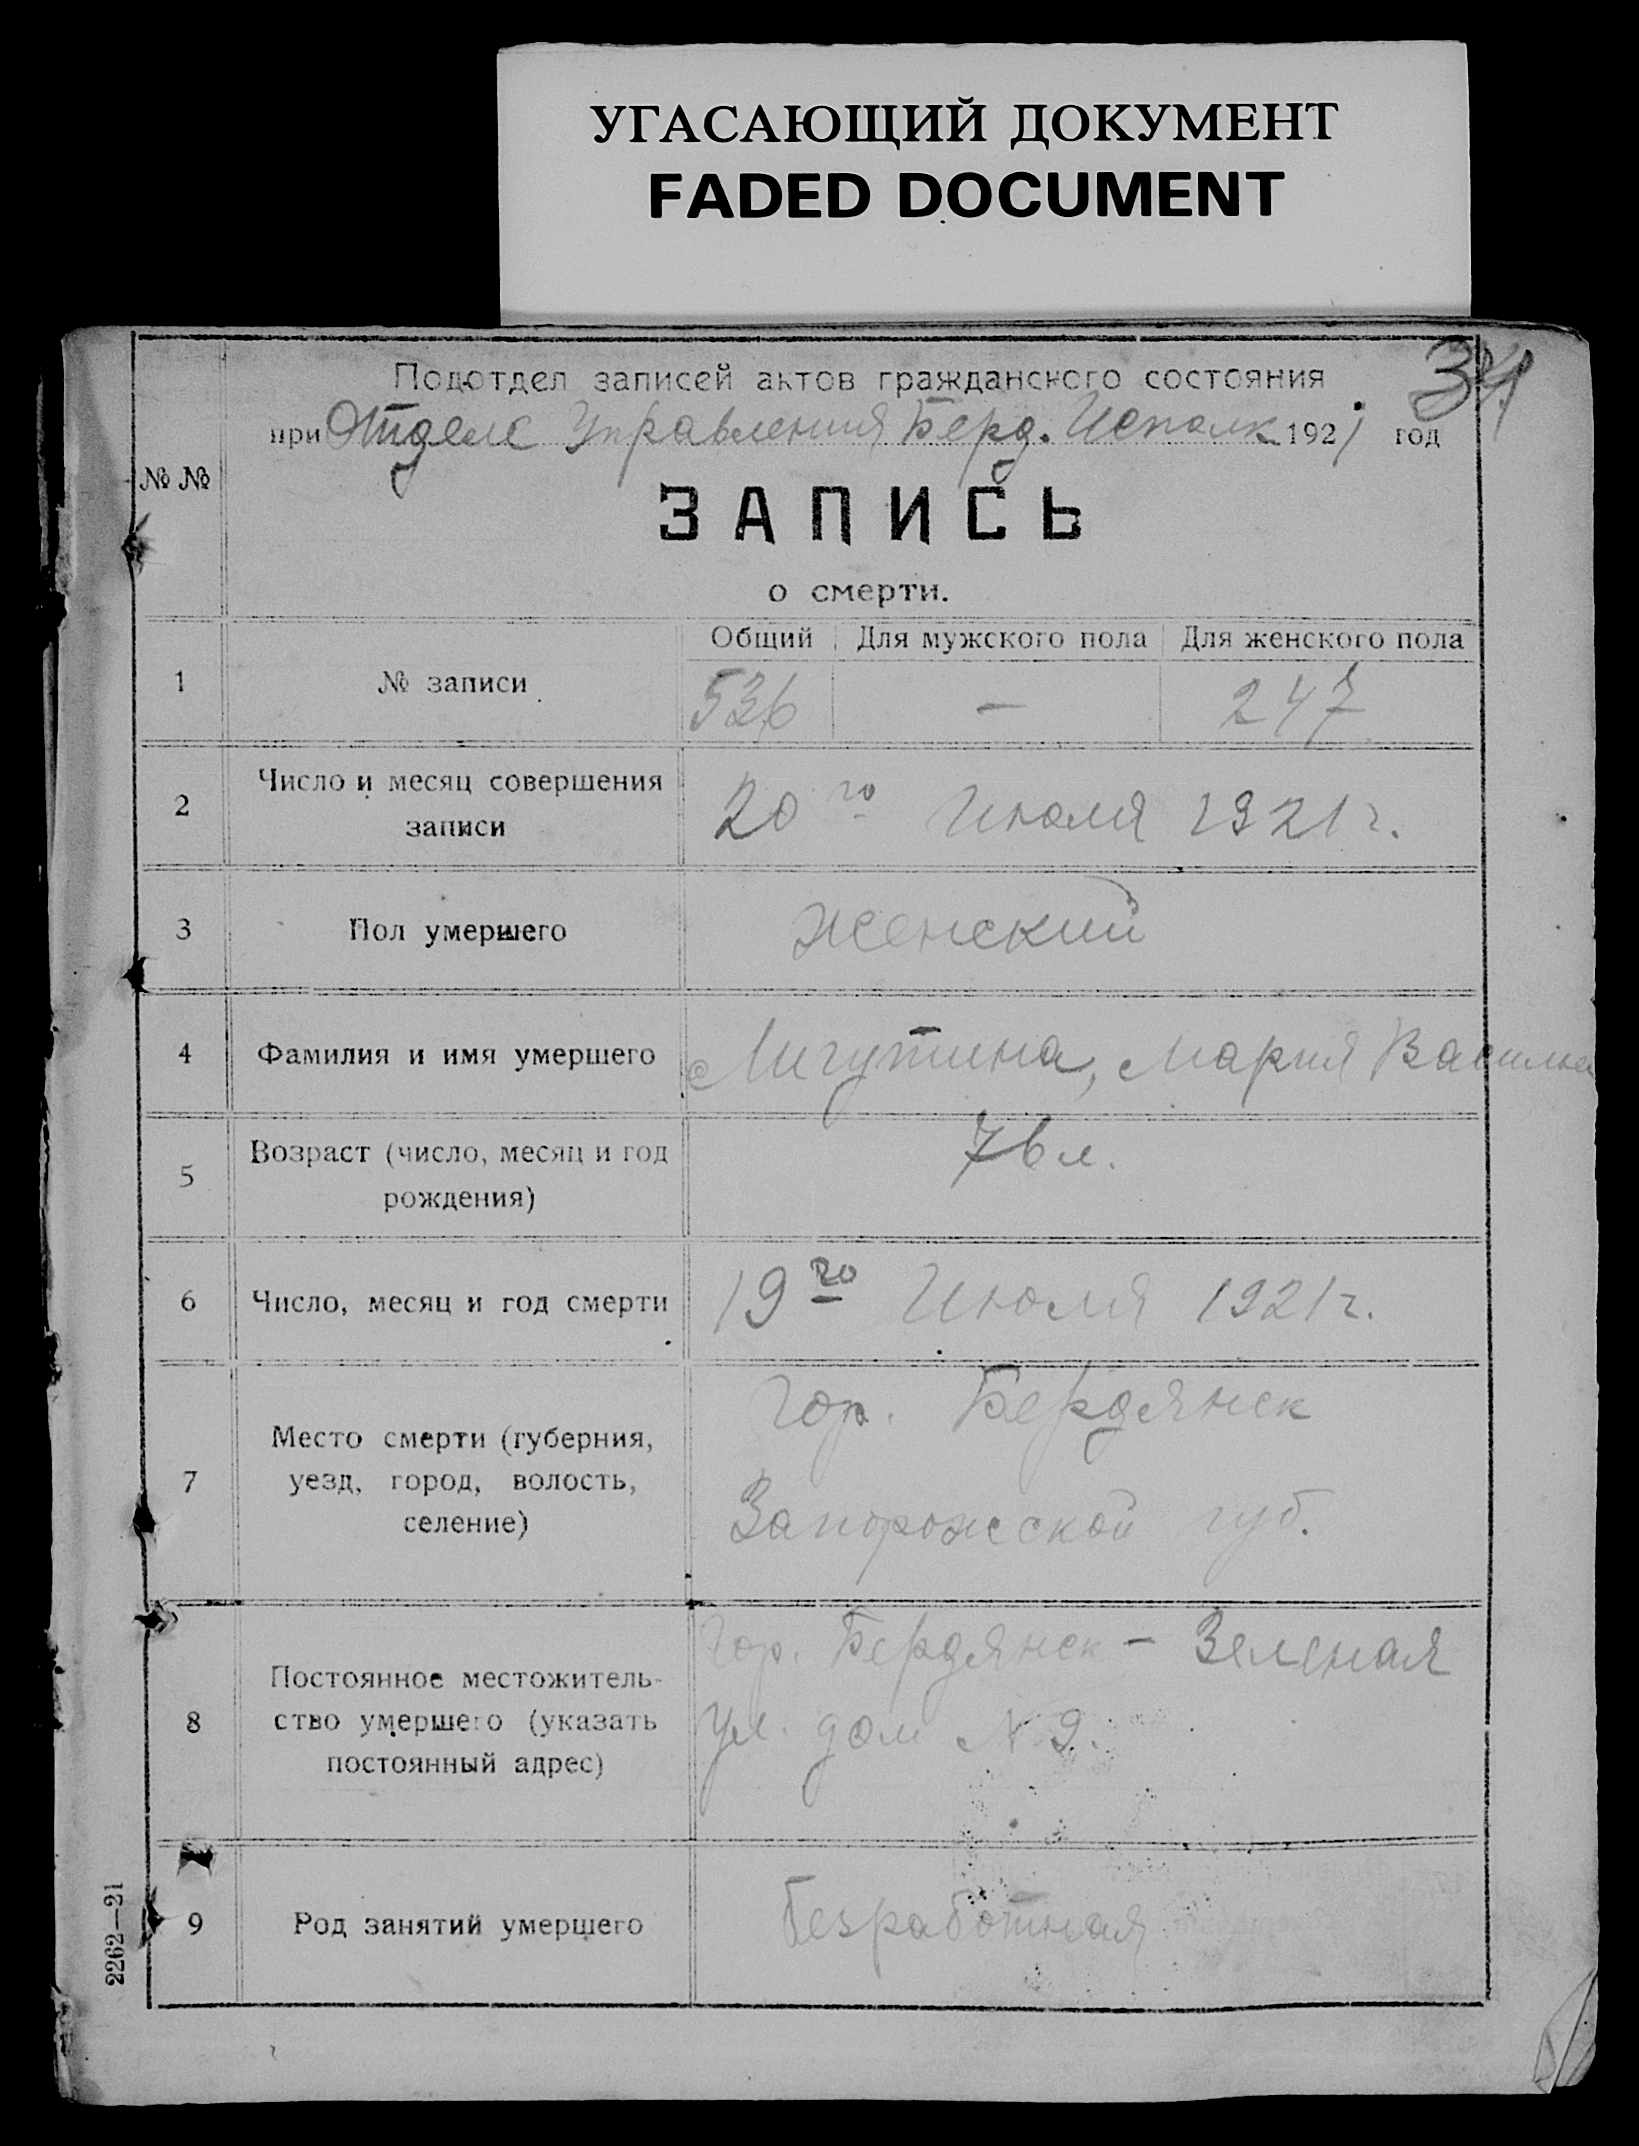 УГАСАЮЩИЙ ДОКУМЕНТ
FADED DOCUMENT
34
Подотдел записей актов гражданского состояния
при Отделе Управления Берд. Исполк. 1921 год
№ №
ЗАПИСЬ
о смерти.
Общий Для мужского пола Для женского пола
1 № записи 536 — 247
2 Число и месяц совершения
записи
20го Июля 1921 г.
3 Пол умершего Женский
4 Фамилия и имя умершего Мария
5 Возраст (число, месяц и год
рождения)
76 л.
6 Число, месяц и год смерти 19го Июля 1921 г.
7 Место смерти (губерния,
уезд, город, волость,
селение)
Гор. Бердянск
Запорожской губ.
8 Постоянное местожитель-
ство умершего (указать
постоянный адрес)
Гор. Бердянск — Зеленая
ул. дом № 9.
9 Род занятий умершего Безработная
2262—21